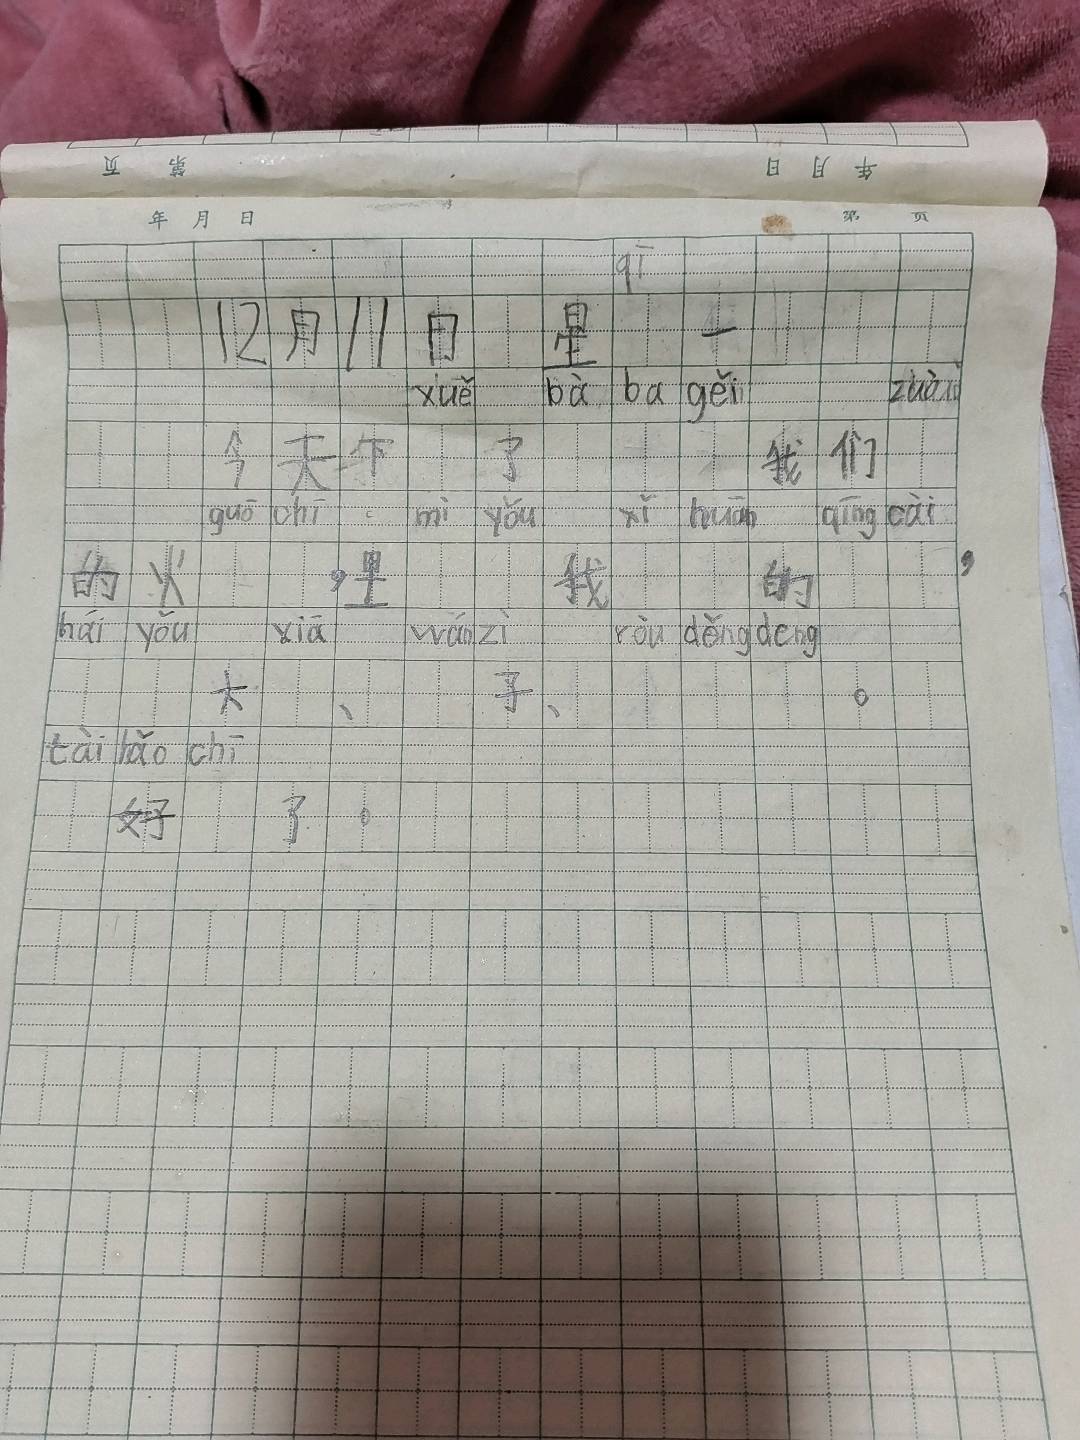 页 第 日 月 年
年 月 日 第 页
qī
12月11日 星 一
xuě bà ba gěi zuò
今天下 了 我们
guō chī mì yǒu xǐ huān qīng cài
的火 ,里 我 的 ,
hái yǒu xiā wán zì ròu děng deng
大 、 子 、 。
tài hǎo chī
好 了 。